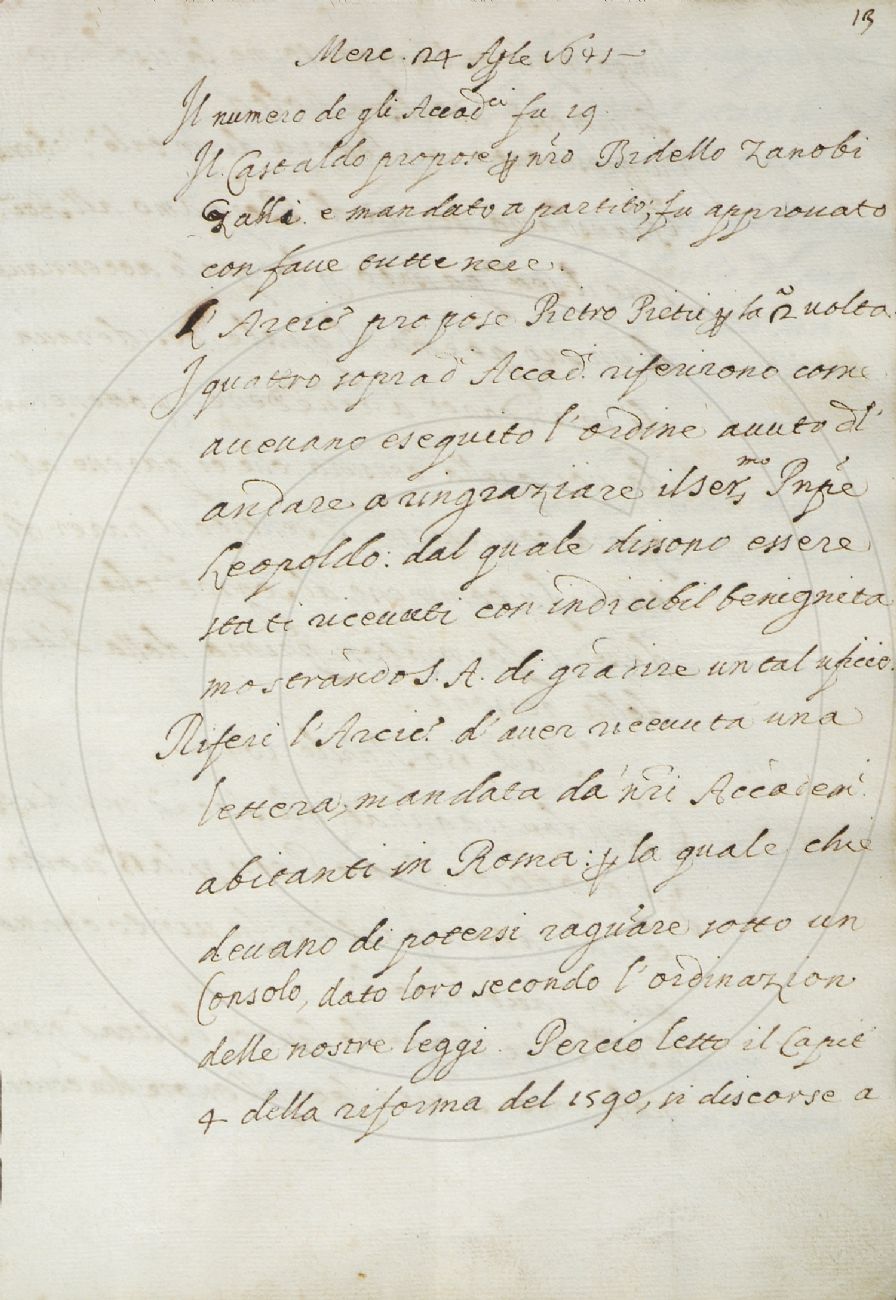 13
Merc. 24 Aple 1641
Il numero de gli Accadci fu 19.
Il Castaldo propose p nro Bidello Zanobi
Zalli e mandato a partito, fu approuato
con faue tutte nere.
L'Arcico propose Pietro Pieti p la 2a uolta.
I quattro soprad. Accad. riferirono come
aueuano eseguito l'ordine auuto d'
andare a ringraziare il Sermo Pnpe
Leopoldo: dal quale dissono essere
stati riceuuti con indicibil benignita
mostrando S. A. di gradire un tal uficio.
Riferi l'Arcico d'auer riceuuta una
lettera, mandata da nri Accadem.
abitanti in Roma: p la quale chie
deuano di potersi ragunare sotto un
Consolo, dato loro secondo l'ordinazion
delle nostre leggi. Percio letto il Capit
4 della riforma del 1590, si discorse a